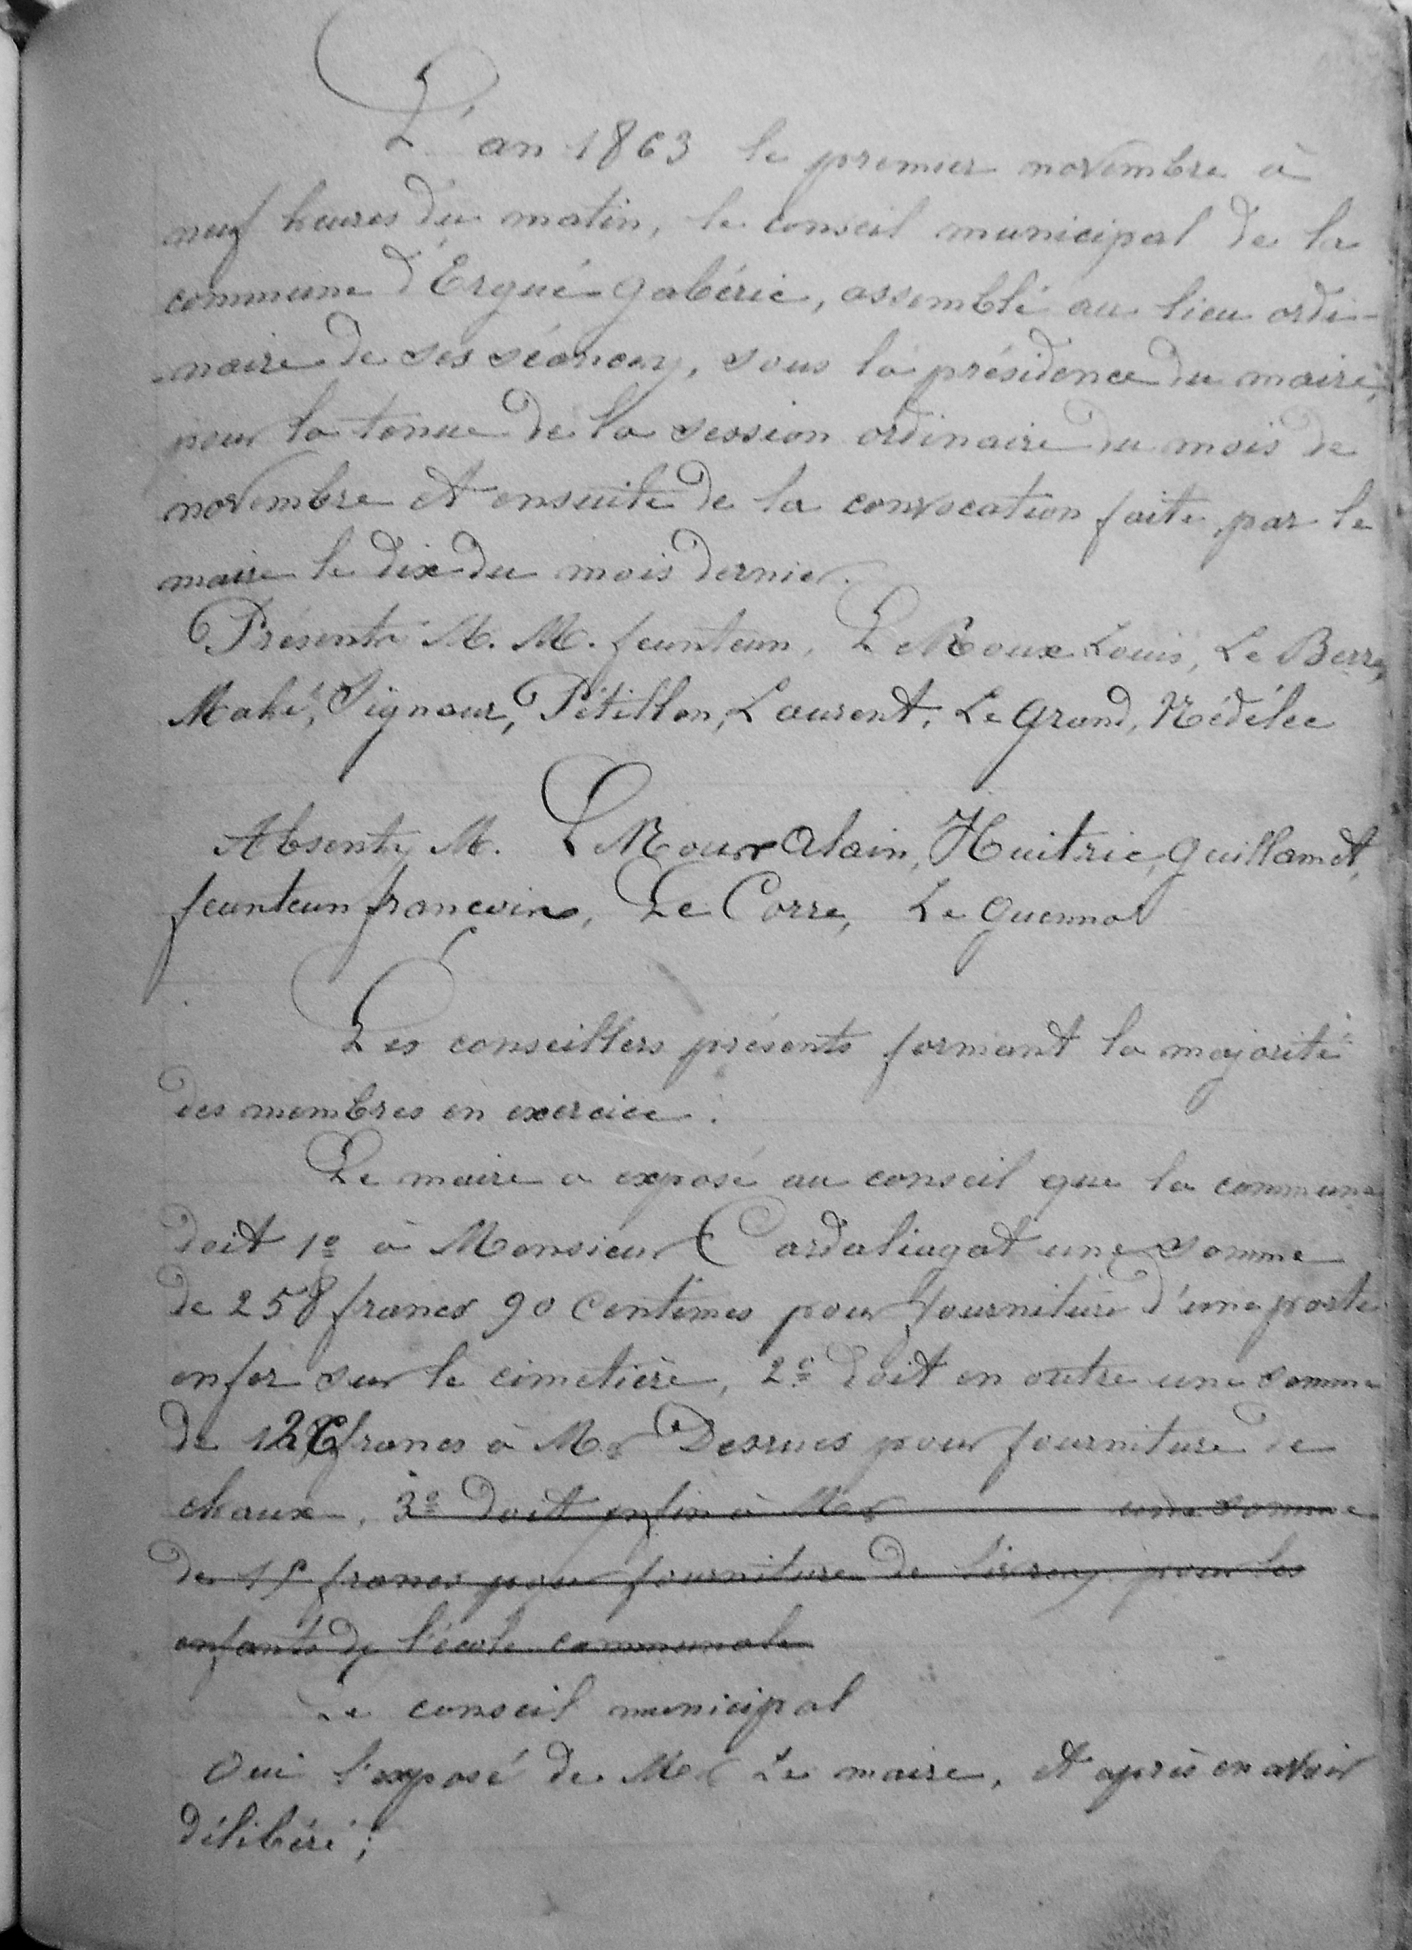 L'an 1863 le premier novembre à
neuf heures du matin, le conseil municipal de la
commune d'Ergué-gabéric, assemblé au lieu ordi-
-naire de ses séances, sous la présidence du maire,
pour la tenue de la session ordinaire du mois de
novembre et ensuite de la convocation faite par le
maire le dix du mois dernier.
Présents M. M. feunteun, Le Roux Louis, Le Berre,
Mahé, Signour, Pétillon, Laurent, Le grand, Nédélec
Absents M. Le Roux alain, Huitric, guillamet,
feunteun francois, Le Corre, Le guenno
Les conseillers présents formant la majorité
des membres en exercice.
Le maire a exposé au conseil que la commune
doit 1º à Monsieur Cardaliagat une somme
de 258 francs 90 centimes pour fourniture d'une porte
en fer sur le cimetière, 2º doit en outre une somme
de francs à Mr Desrues pour fourniture de
chaux, 3º doit enfin à Mr une somme
de francs pour fourniture de livres pour les
enfants de l'école communale
Le conseil municipal
Oui l'exposé de Mr Le maire, et après en avoir
délibéré;